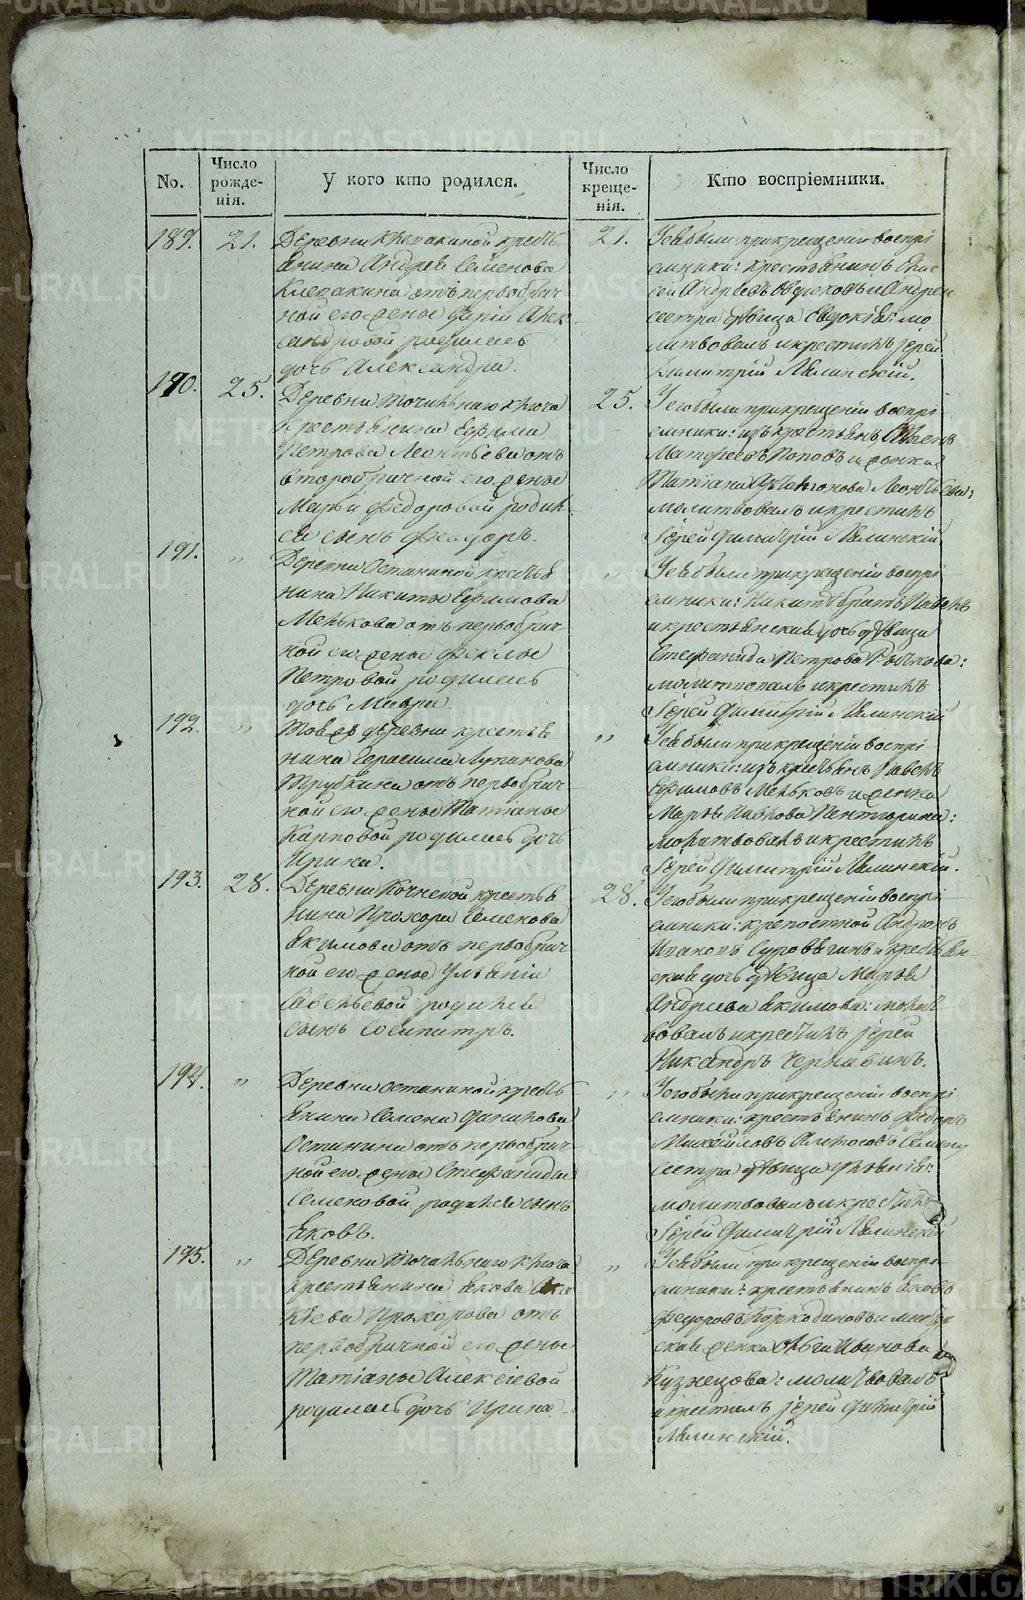 No.
Число рожде-нія.
У кого кто родился.
Число креще-нія.
Кто воспріемники.
189.
21.
Деревни Клепакиной кресть
янина Андрея Семенова
Клепакина отъ первобрач
ной его жены Дарiи Алек
сандровой родилась
дочь Александра.
21.
У ея были при крещеніи воспрі
емники: крестьянинъ
сей Андреевъ и Андрея
сестра дѣвица Евдокія: мо
литвовалъ и крестилъ іерей
Димитрій Лялинскій.
190.
25.
Деревни Точильнаго Ключа
крестьянина Ефима
Петрова Леонтьева отъ
второбрачной его жены
Марьи Федоровой родил
ся сынъ Феодоръ.
25.
У его были при крещеніи воспрі
емники: изъ крестьянъ
Матфеевъ Поповъ и женка
Татіана Леонтьева:
молитвовалъ и крестилъ
Іерей Димитрій Лялинскій
191.
"
Деревни Останиной крестья
нина Никиты Ефимова
Менькова отъ первобрач
ной его жены Феклы
Петровой родилась
дочь Мавра.
"
У ея были при крещеніи воспрі
емники: Никиты братъ Павелъ
и крестьянская дочь дѣвица
Стефанида Петрова Рычкова:
молитвовалъ и крестилъ
Іерей Димитрій Лялинскій
192.
"
Тоя же деревни крестья
нина Герасима Лупанова
Трубкина отъ первобрач
ной его жены Татіаны
Карповой родилась дочь
Ирина.
"
У ея были при крещеніи воспрі
емники: изъ крестьянъ Павелъ
Ефимовъ Меньковъ и женка
Марья Павлова
молитвовалъ и крестилъ
Іерей Димитрій Лялинскій.
193.
28.
Деревни Кочневой крестья
нина Прохора Семенова
Якимова отъ первобрач
ной его жены Ульяніи
Савельевой родился
сынъ Сосипатръ.
28.
У его были при крещеніи воспрі
емники: крепостной Андронъ
Ивановъ Суровягинъ и крестьян
ская дочь дѣвица Марья
Андреева Якимова: молит
вовалъ и крестилъ іерей
Никандръ Чернавинъ.
194.
"
Деревни Останиной кресть
янина Семена Данилова
Останина отъ первобрач
ной его жены Стефаниды
Семеновой родился сынъ
Яковъ.
"
У его были при крещеніи воспрі
емники: крестьянинъ Федоръ
Михайловъ Семена
сестра дѣвица
молитвовалъ и крестилъ
Іерей Димитрій Лялинскій
195.
"
Деревни Точильнаго Ключа
крестьянина Якова
Прохорова отъ
первобрачной его жены
Татіаны Алексіевой
родилась дочь Ирина.
"
У ея были при крещеніи воспрі
емники: крестьянинъ Яковъ
Федоровъ Коркодиновъ и
ская женка Ольга Иванова
Кузнецова: молитвовалъ
и крестилъ іерей Димитрій
Лялинскій.